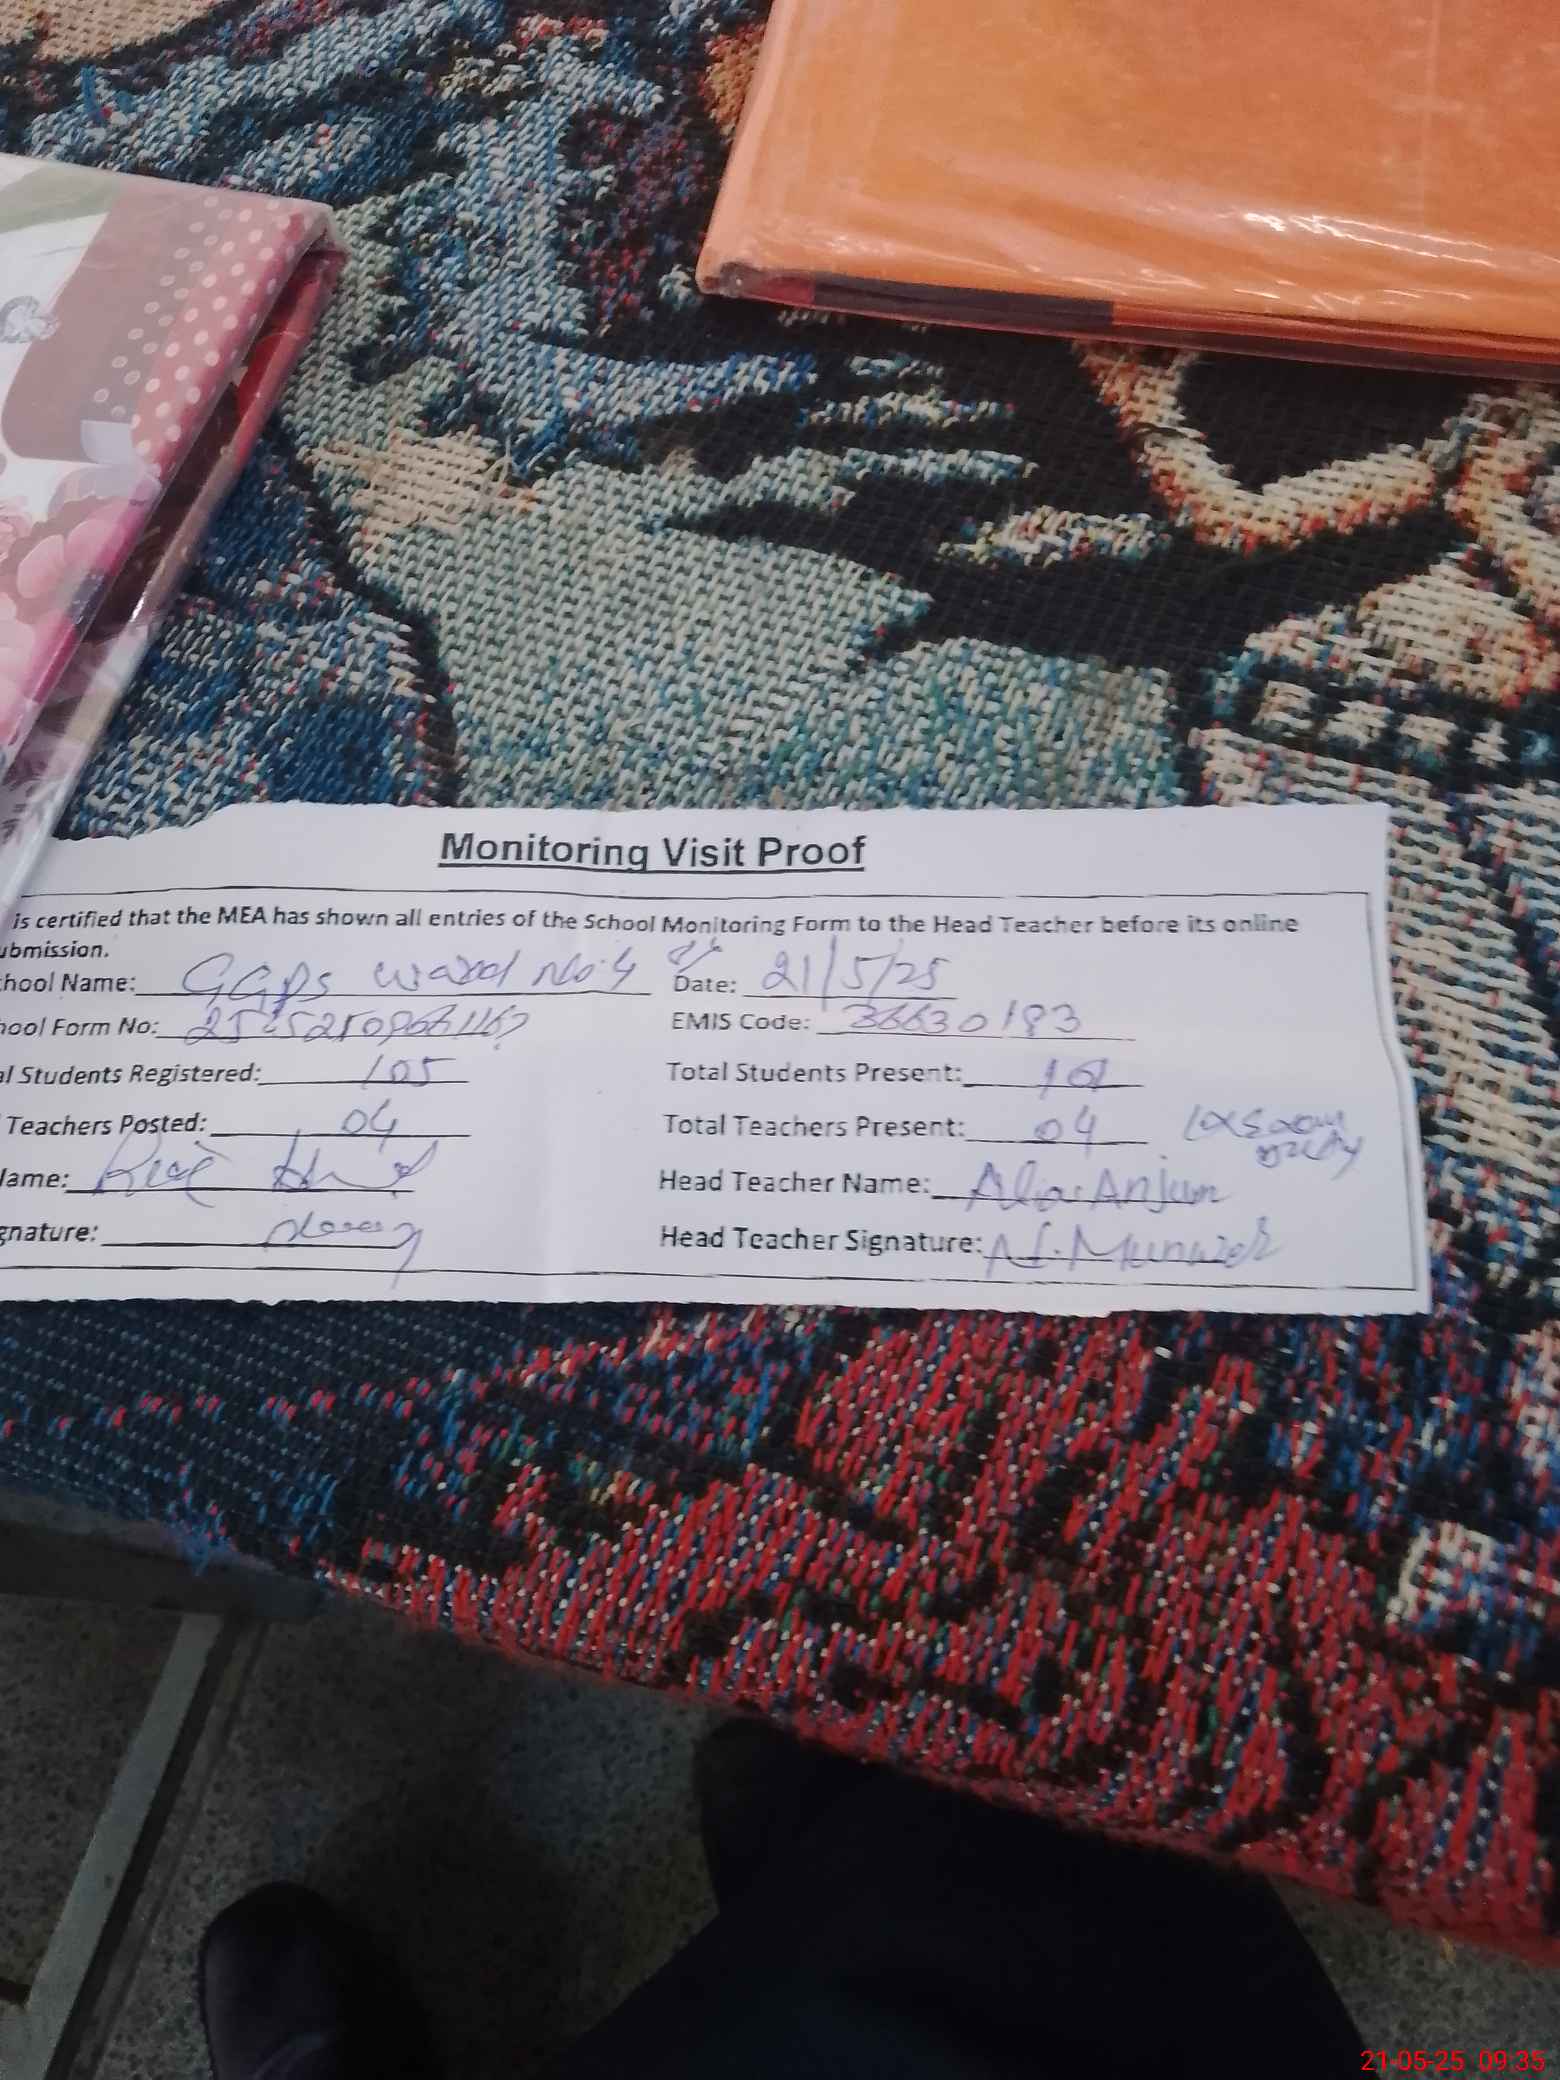 Monitoring Visit Proof
is certified that the MEA has shown all entries of the School Monitoring Form to the Head Teacher before its online
ubmission.
chool Name: GGPS ward No. 4 Date: 21/5/25
hool Form No: EMIS Code: 36630193
al Students Registered: 105 Total Students Present: 101
Teachers Posted: 04 Total Teachers Present: 04
Name: Head Teacher Name: Alia Anjum
gnature: Head Teacher Signature:
21-05-25 09:35